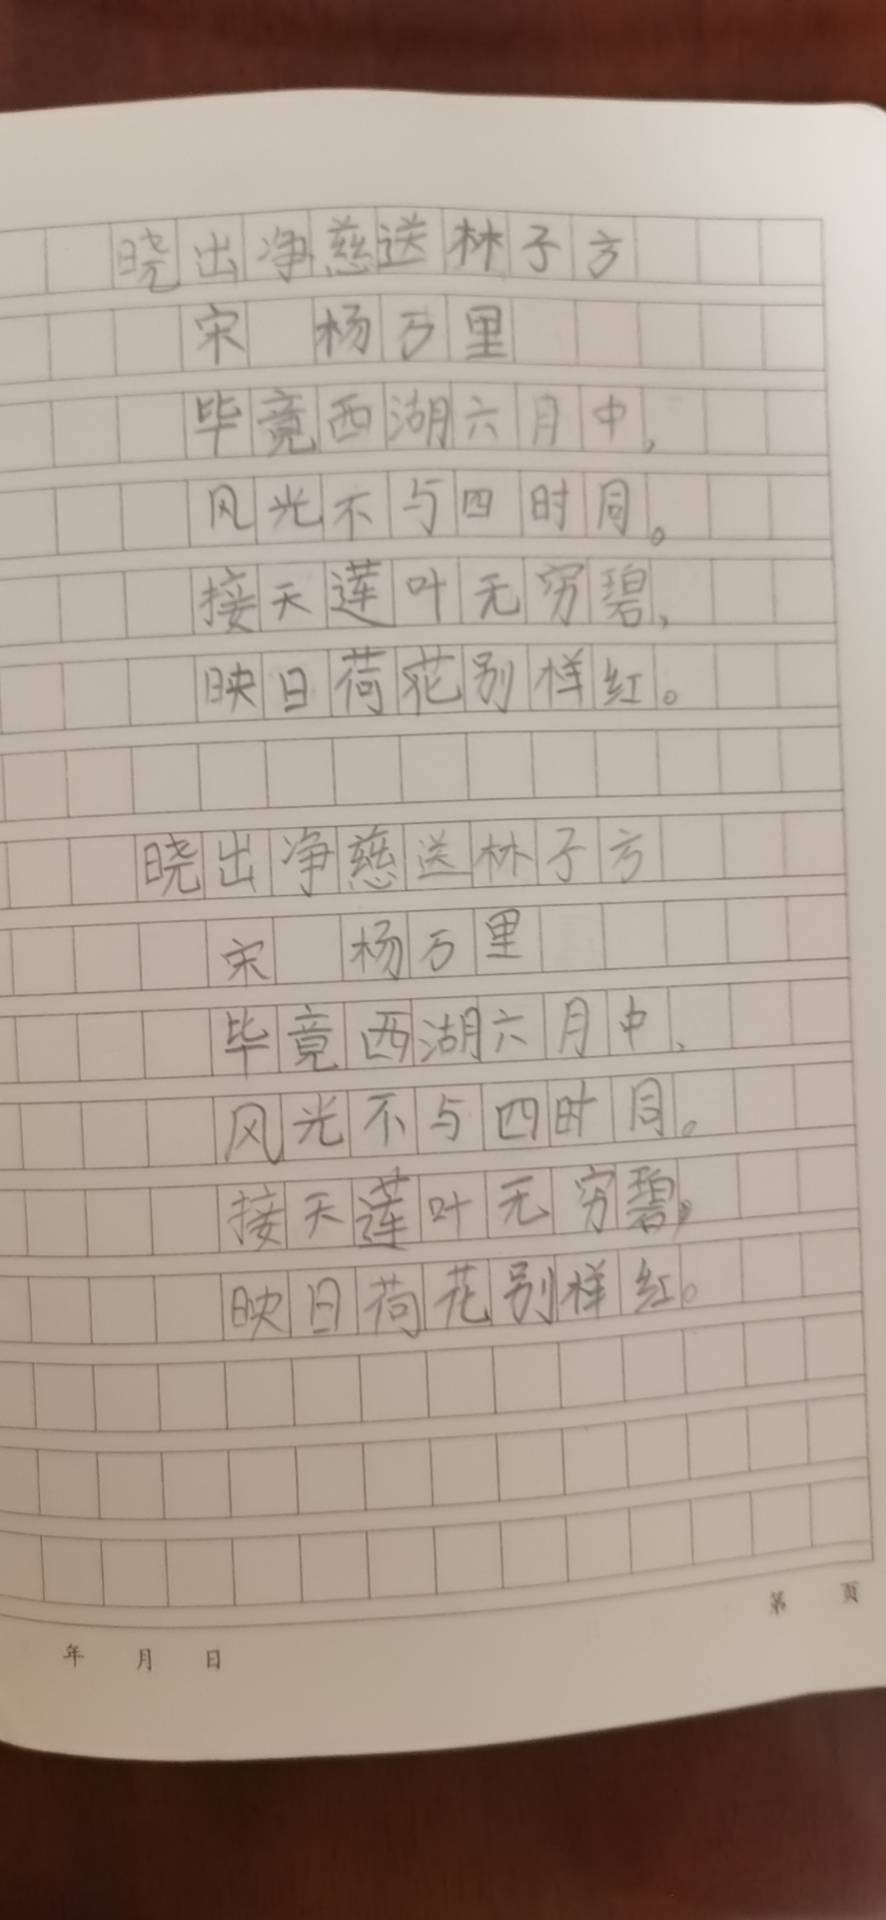 晓出净慈送林子方
宋 杨万里
毕竟西湖六月中，
风光不与四时同。
接天莲叶无穷碧，
映日荷花别样红。
晓出净慈送林子方
宋 杨万里
毕竟西湖六月中、
风光不与四时同。
接天莲叶无穷碧，
映日荷花别样红。
第 页
年 月 日